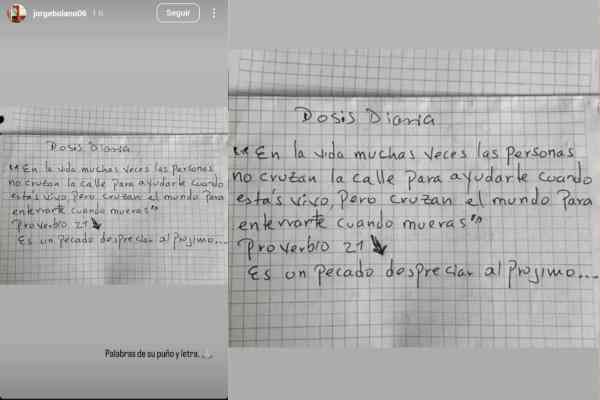 jorgebolano06 1 h
Seguir
Dosis Diaria
"En la vida muchas veces las personas
no cruzan la calle para ayudarte cuando
estás vivo, pero cruzan el mundo para
enterrarte cuando mueras"
Proverbio 21
Es un pecado despreciar al projimo...
Palabras de su puño y letra.
Dosis Diaria
"En la vida muchas veces las personas
no cruzan la calle para ayudarte cuando
estás vivo, pero cruzan el mundo para
enterrarte cuando mueras"
Proverbio 21
Es un pecado despreciar al projimo...